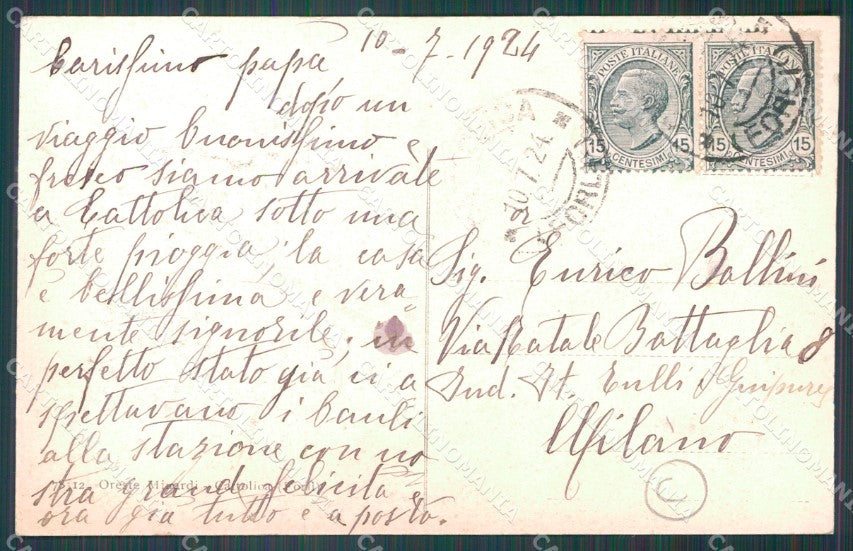 10-7-1924
Carissimo papà
dopo un
viaggio buonissimo e
fresco siamo arrivate
a Cattolica sotto una
forte pioggia la casa
è bellissima e vera
mente signorile, in
perfetto stato già, ci a
spettavano i bauli
alla stazione con no
stra grande felicità e
ora già tutto è a posto.
S-12 Oreste Minardi - Cattolica (Forlì)
POSTE ITALIANE
15 CENTESIMI 15
POSTE ITALIANE
15 CENTESIMI 15
10.7.24.
(FORLI)
(FORLI)
Sig. Enrico Ballini
Via Natale Battaglia 8
Ind. It. Tulli & Guipures
Milano
CARTOLINOMANIA